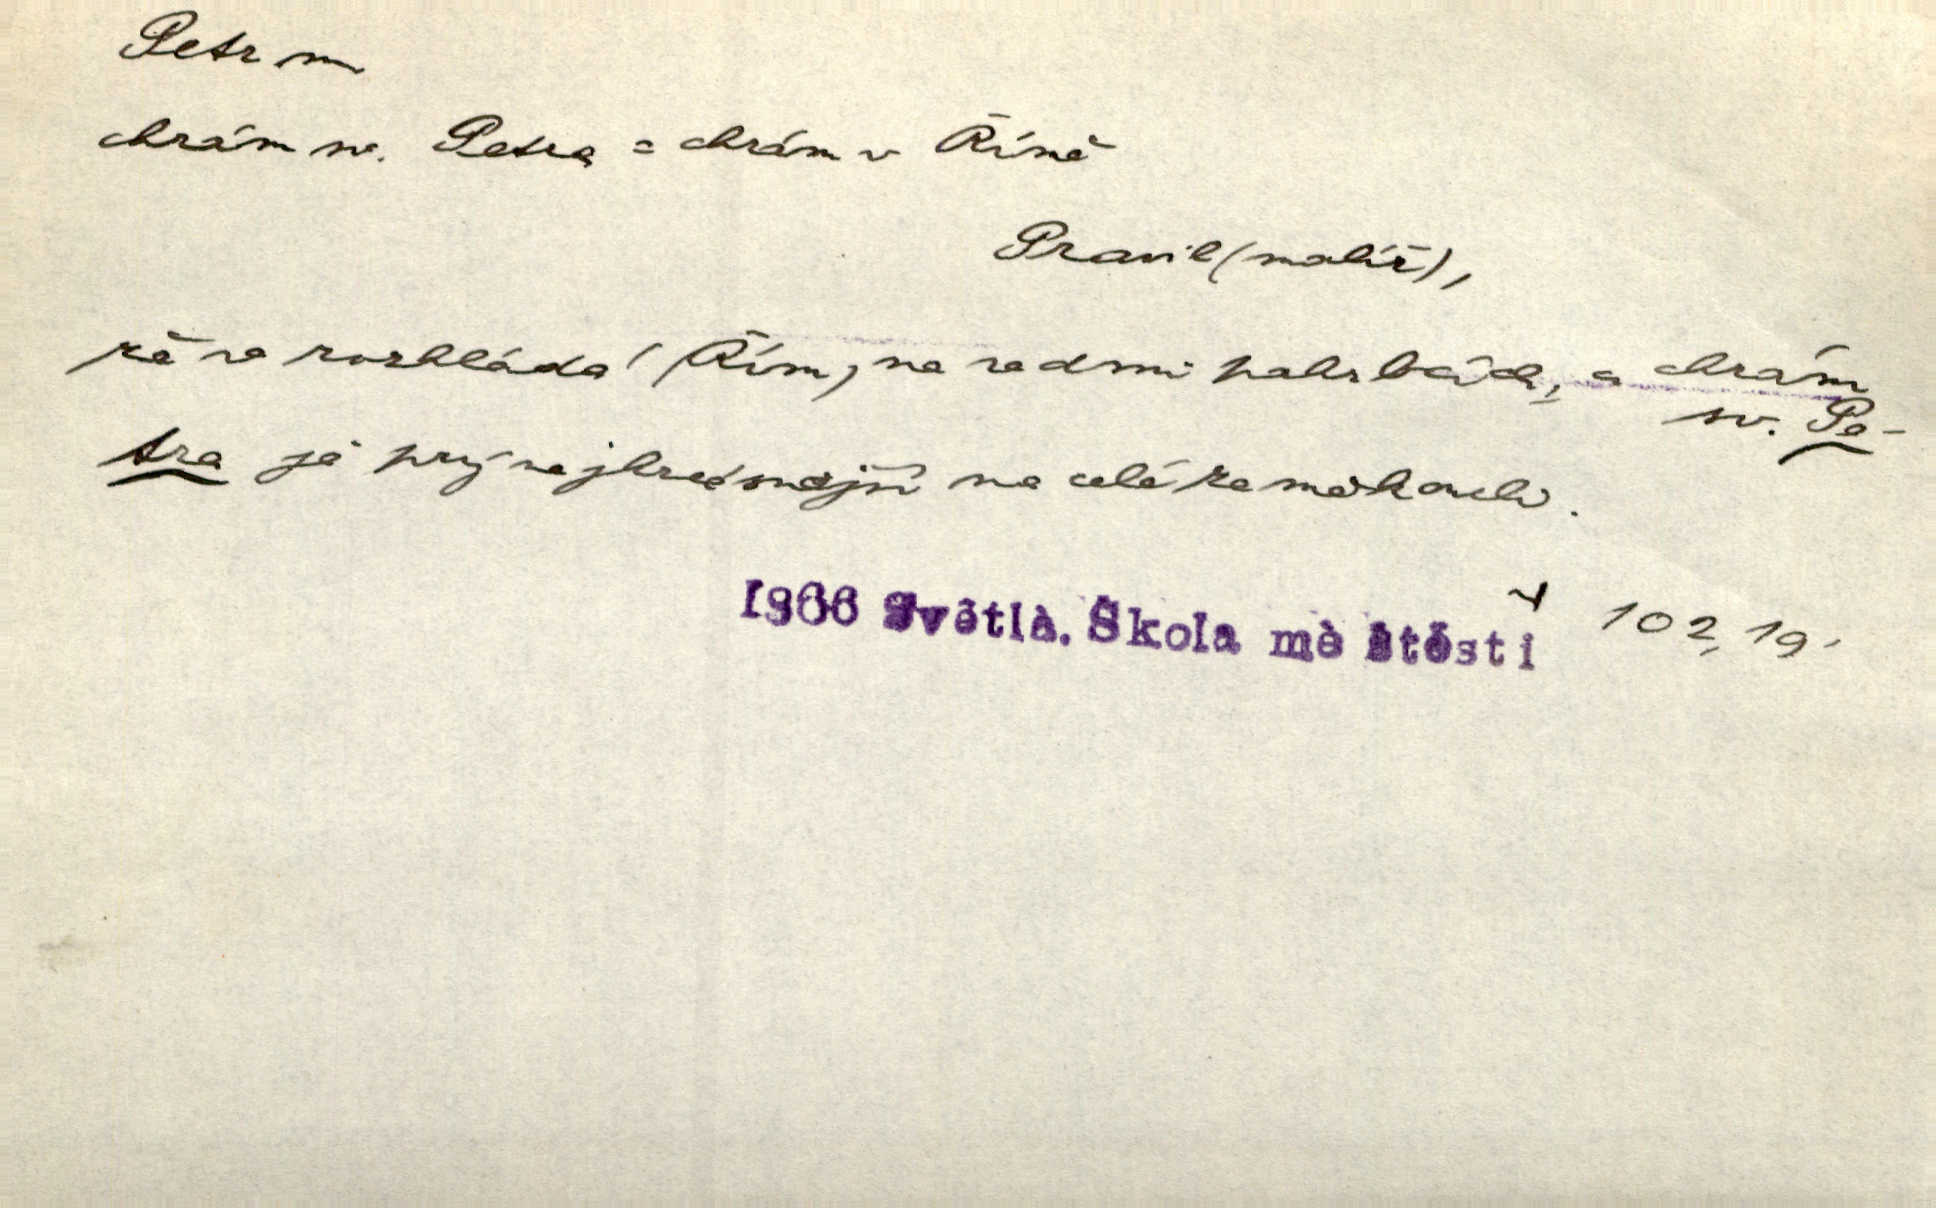 Petr m
chrám sv. Petra = chrám v Římě
Pravil (malíř),
že se rozkládá (Řím) na sedmi pahrbcích, a chrám
sv. Pe-
tra je prý nejkrásnější na celé zeměkouli.
1966 Světlá. Škola mé štěstí 102, 19.